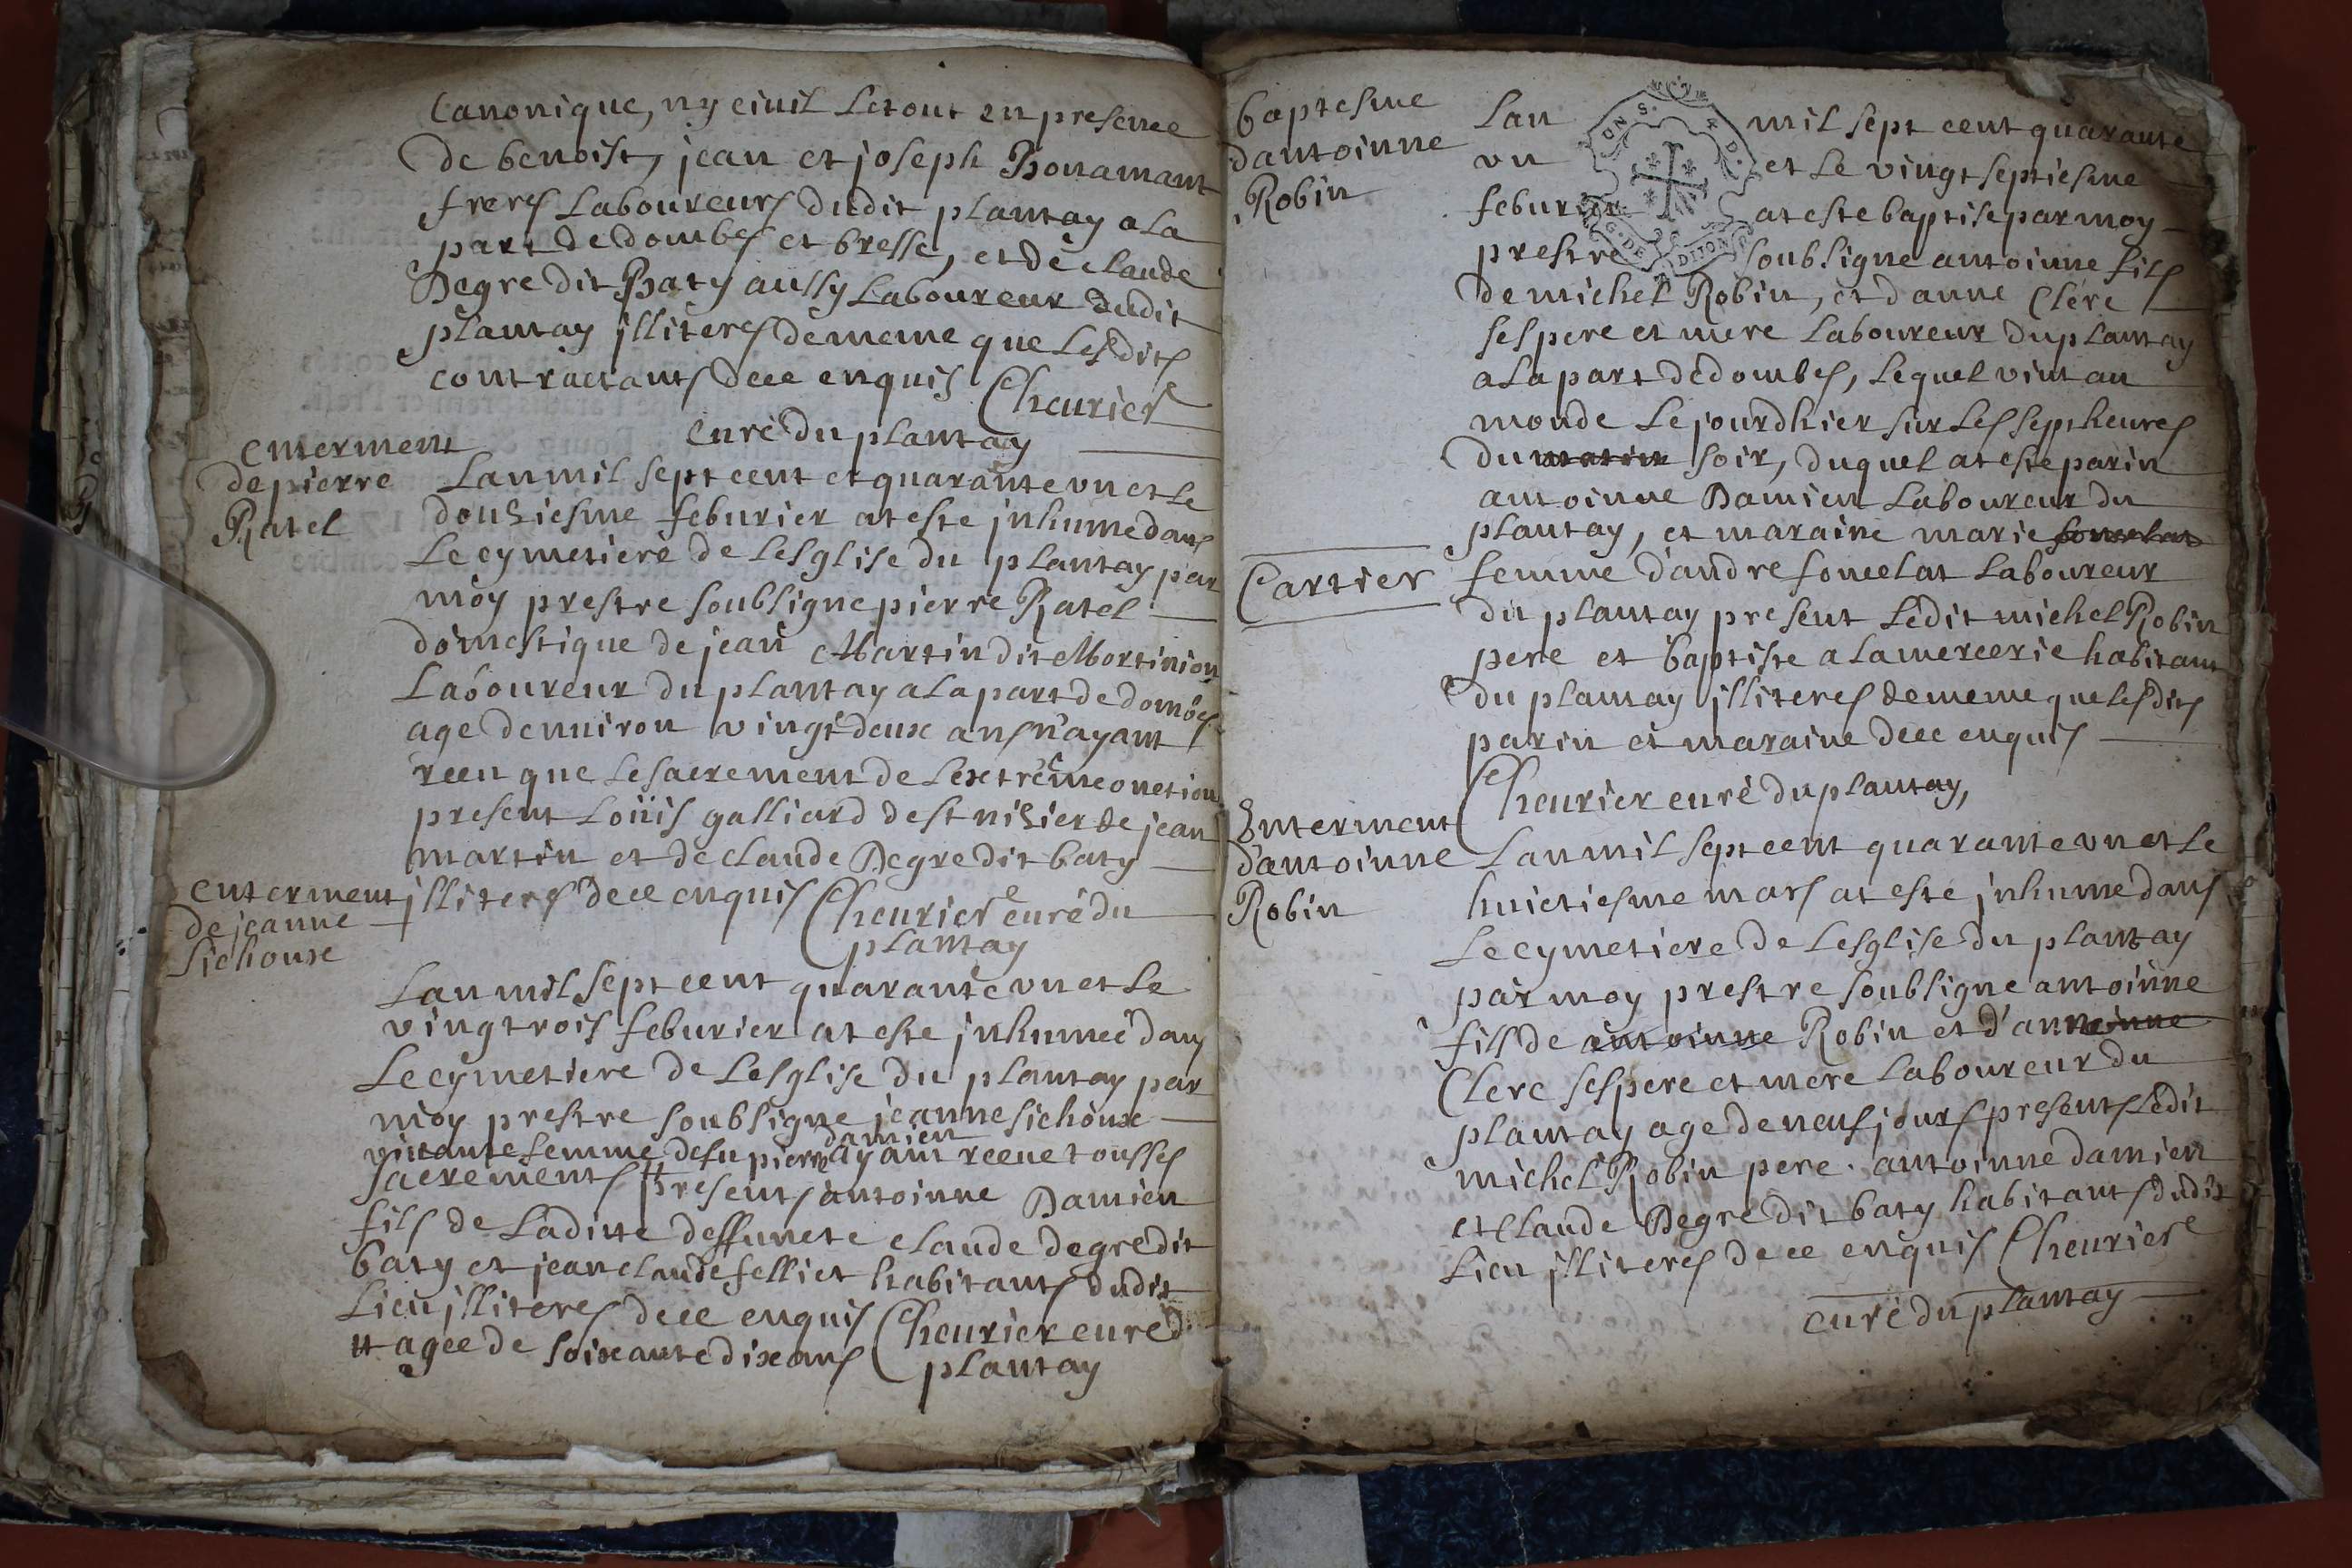 Canonique, ny civil le tout en presence
de benoist, jean et joseph Bonamant
freres Laboureurs dudit plantay a la
part de dombes et bresse, et de claude
Degre dit Baty aussy Laboureur dudit
plantay jlliteres de meme que les dits
contractants de ce enquis Cheurier
curé du plantay
enterment
de pierre
Ratel
Lan mil sept cent et quarante vn et le
douziesme feburier at este jnhume dans
Le cymetiere de Lesglise du plantay par
moy prestre soubsigne pierre Ratel
domestique de jean Martin dit Mortinion
Laboureur du plantay a la part de dombes
age denuiron vingt deux ans n'ayant
receu que le sacrement de Lextrême onction
present Loüis galliard de st nizier de jean
martin et de claude Degre dit baty
jlliteres de ce enquis Cheurier curé du
plantay
enterment
de jeanne
Sichoux
Lan mil sept cent quarante vn et le
vingtrois feburier at este jnhumeé dans
Le cymetiere de Lesglise du plantay par
moy prestre soubsigne jeanne Sichoux
viuante femme de fu pierre damien ayant receue tous ses
sacrements # presents antoinne Damien
fils de Laditte deffuncte claude degre dit
baty et jean claude felliet habitants dudit
Lieu jlliteres de ce enquis Cheurier curé d.
# agee de soixante dix ans plantay
baptesme
dantoinne
Robin
Lan mil sept cent quarante
vn et le vingt septiesme
feburier at este baptise par moy
prestre soubsigne antoinne fils
de michel Robin, et d'anne Clerc
ses pere et mere Laboureur du plantay
a la part de dombes, lequel vint au
monde le jourdhier sur les sept heures
du matin soir, duquel at este parin
antoinne Damien Laboureur du
plantay, et maraine marie foncelat
Cartier
femme d'andre foncelat Laboureur
du plantay present ledit michel Robin
pere et baptiste a la mercerie habitant
du plantay jlliteres de meme que lesdits
parin et maraine de ce enquis
Cheurier curé du plantay,
Enterment
d'antoinne
Robin
Lan mil sept cent quarante vn et le
huictiesme mars at este jnhume dans
Le cymetiere de Lesglise du plantay
par moy prestre soubsigne antoinne
fils de antoinne Robin et d'anne
Clerc ses pere et mere Laboureur du
plantay age de neuf jours presents ledit
michel Robin pere. antoinne damien
et claude Degre dit baty habitants dudit
Lieu jlliteres de ce enquis Cheurier
curé du plantay